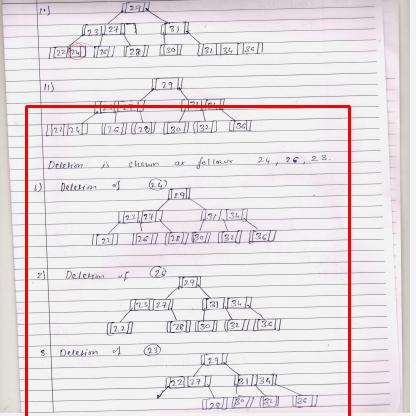 10)
[29]
[23|27] [31]
[22|24] [26] [28] [30] [31|34|36]
11)
[29]
[22|24] [26] [28] [30] [32] [36]
Deletion is shown as follows 24, 26, 23.
1) Deletion of (24)
[29]
[23|27] [31|34]
[22] [26] [28] [30] [32] [36]
2) Deletion of (26)
[29]
[23|27] [31|34]
[22] [28] [30] [32] [36]
3 Deletion of (23)
[29]
[22|27] [31|34]
[28] [30] [32] [36]